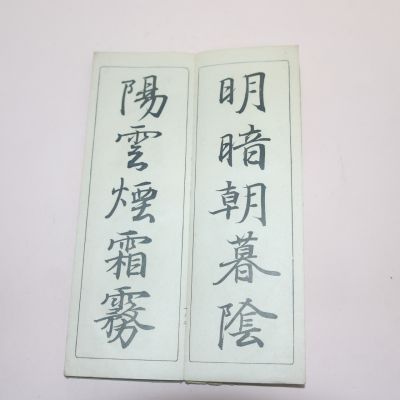 明暗朝暮陰
陽雲煙霜霧